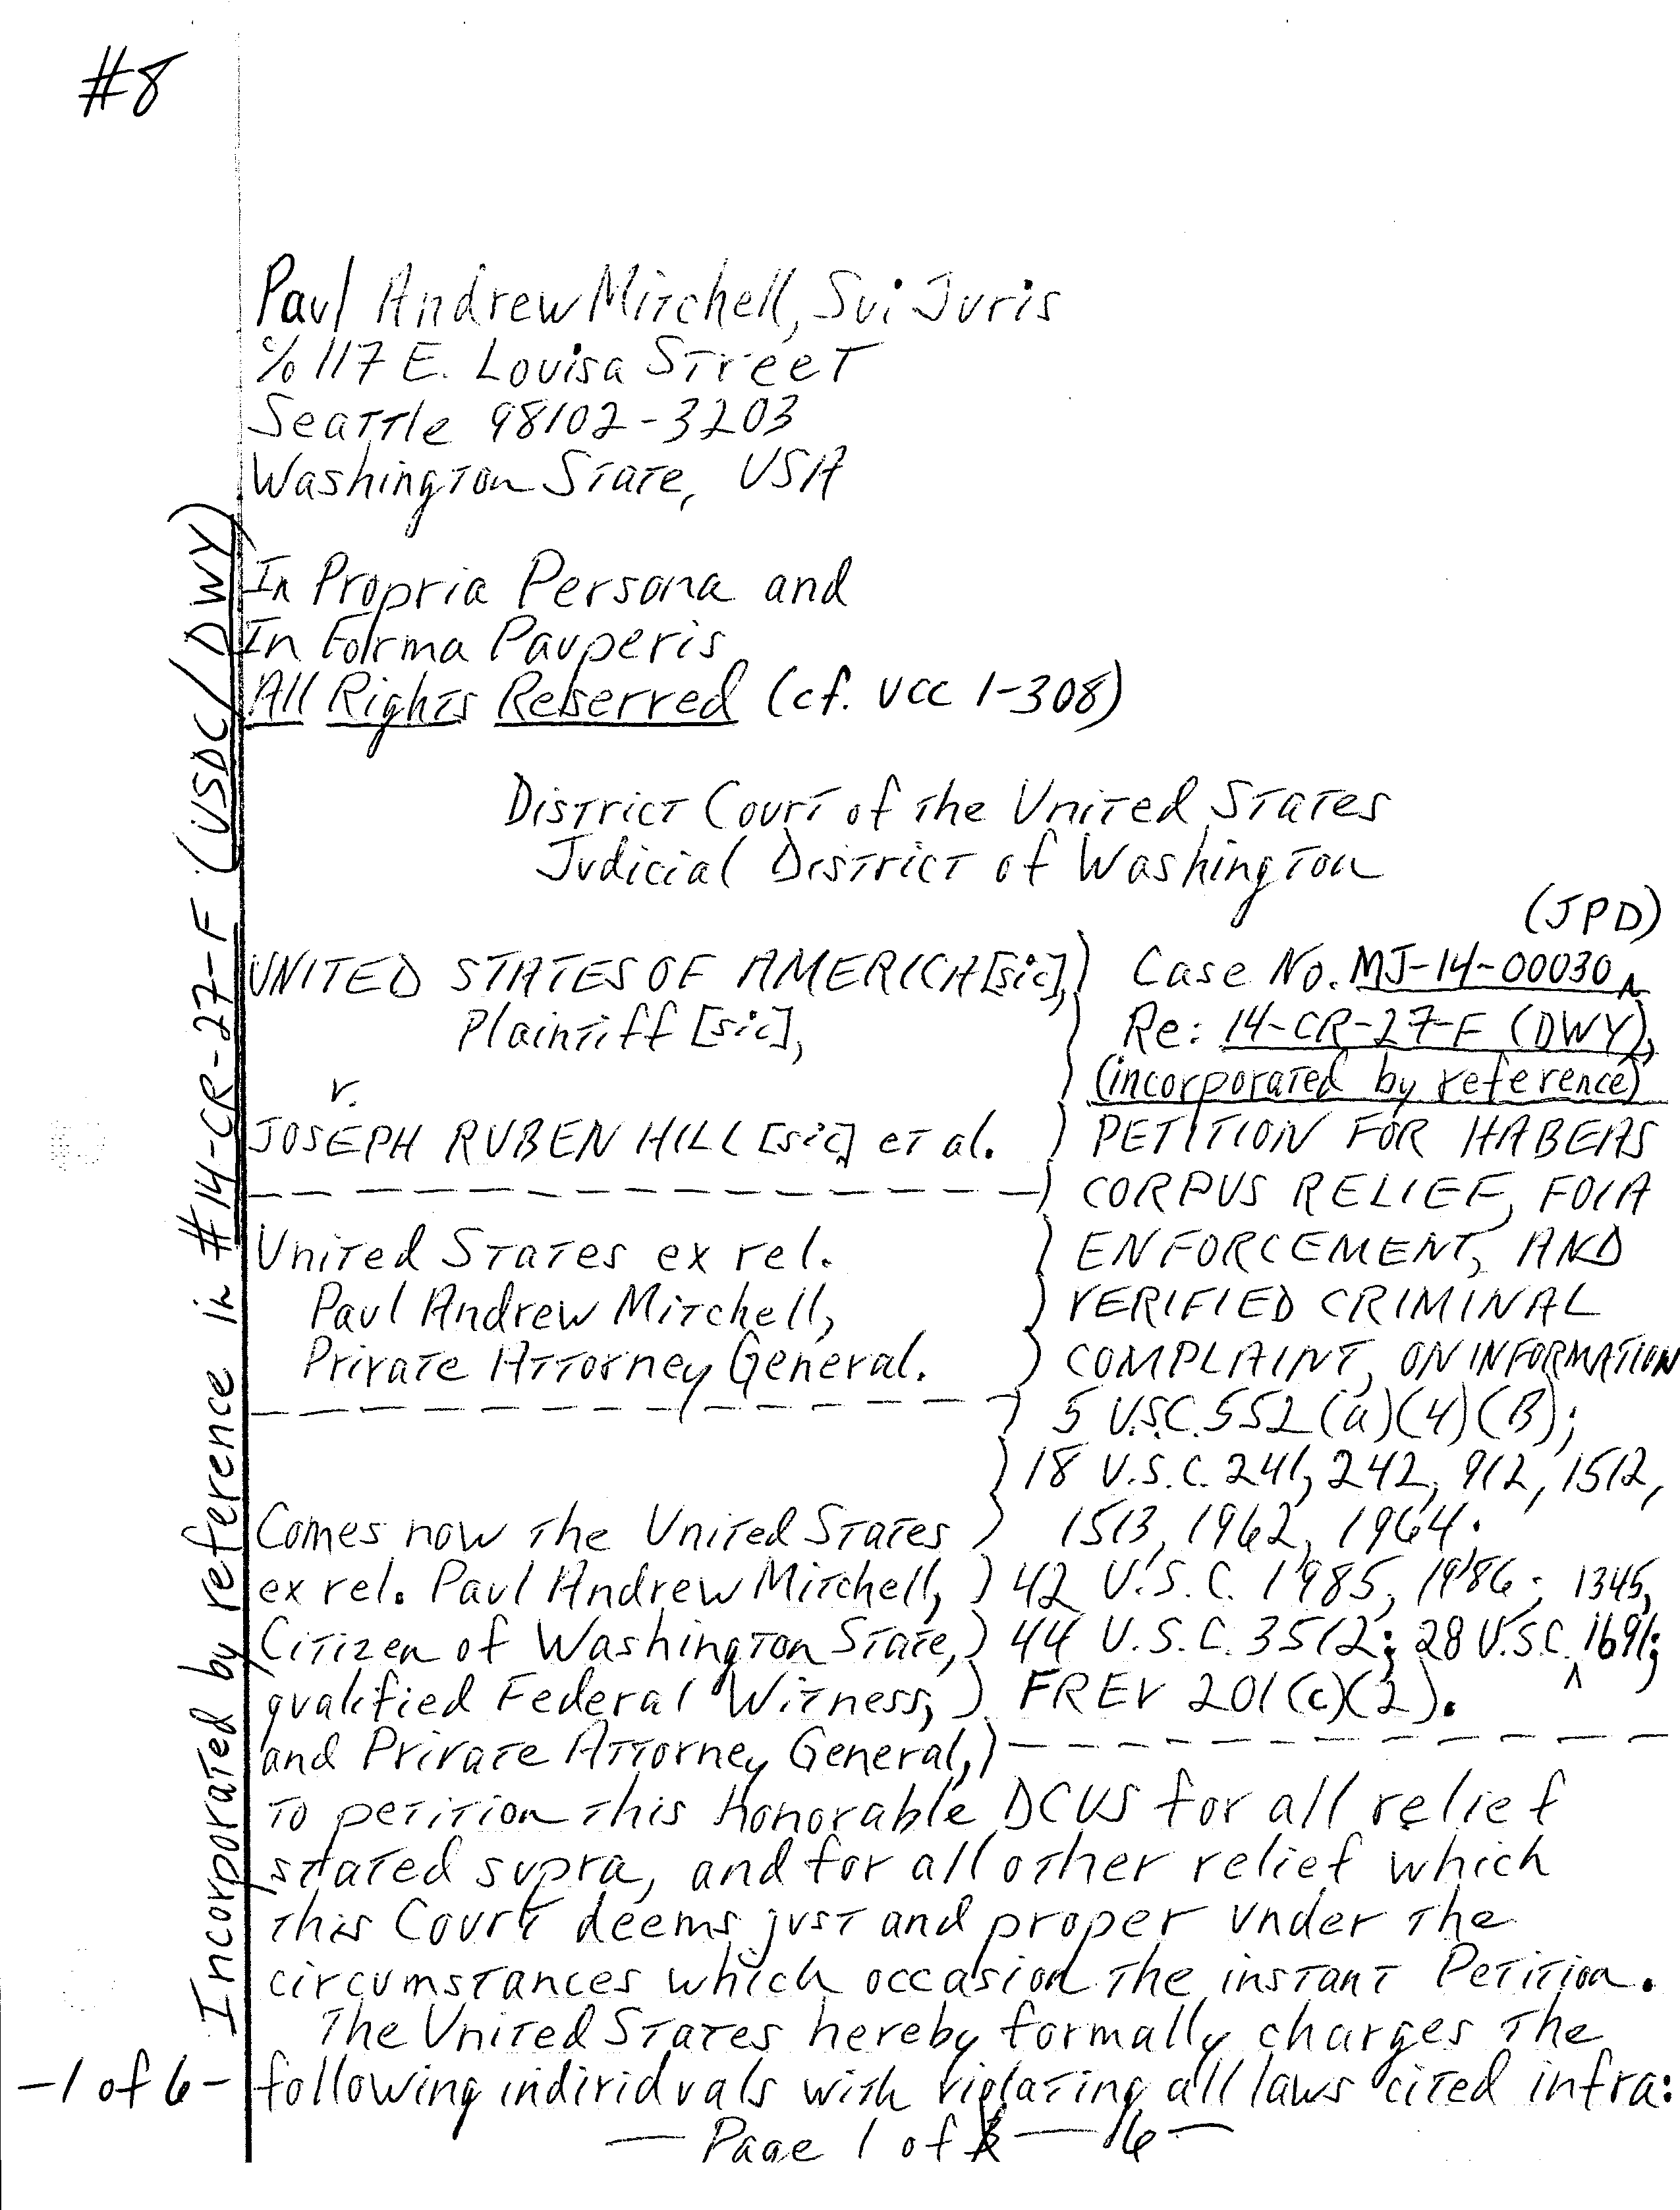 #8
Paul Andrew Mitchell, Sui Juris
c/o 117 E. Louisa Street
Seattle 98102-3203
Washington State, USA
In Propria Persona and
In Forma Pauperis
All Rights Reserved (cf. UCC 1-308)
District Court of the United States
Judicial District of Washington
(JPD)
UNITED STATES OF AMERICA [sic], ) Case No. MJ-14-00030 ^
Plaintiff [sic], ) Re: 14-CR-27-F (DWY),
v. ) (incorporated by reference)
JOSEPH RUBEN HILL [sic] et al. ) PETITION FOR HABEAS
) CORPUS RELIEF, FOIA
United States ex rel. ) ENFORCEMENT, AND
Paul Andrew Mitchell, ) VERIFIED CRIMINAL
Private Attorney General. ) COMPLAINT, ON INFORMATION
) 5 U.S.C. 552(a)(4)(B);
) 18 U.S.C. 241, 242, 912, 1512,
Comes now the United States ) 1513, 1962, 1964.
ex rel. Paul Andrew Mitchell, ) 42 U.S.C. 1985, 1986; 1345,
Citizen of Washington State, ) 44 U.S.C. 3512; 28 U.S.C. ^ 1691;
qualified Federal Witness, ) FREV 201(c)(2).
and Private Attorney General, )
to petition this Honorable DCUS for all relief
stated supra, and for all other relief which
this Court deems just and proper under the
circumstances which occasion the instant Petition.
The United States hereby formally charges the
following individuals with violating all laws cited infra:
— Page 1 of — 6 —
-1 of 6-
Incorporated by reference in #14-CR-27-F (USDC/DWY)